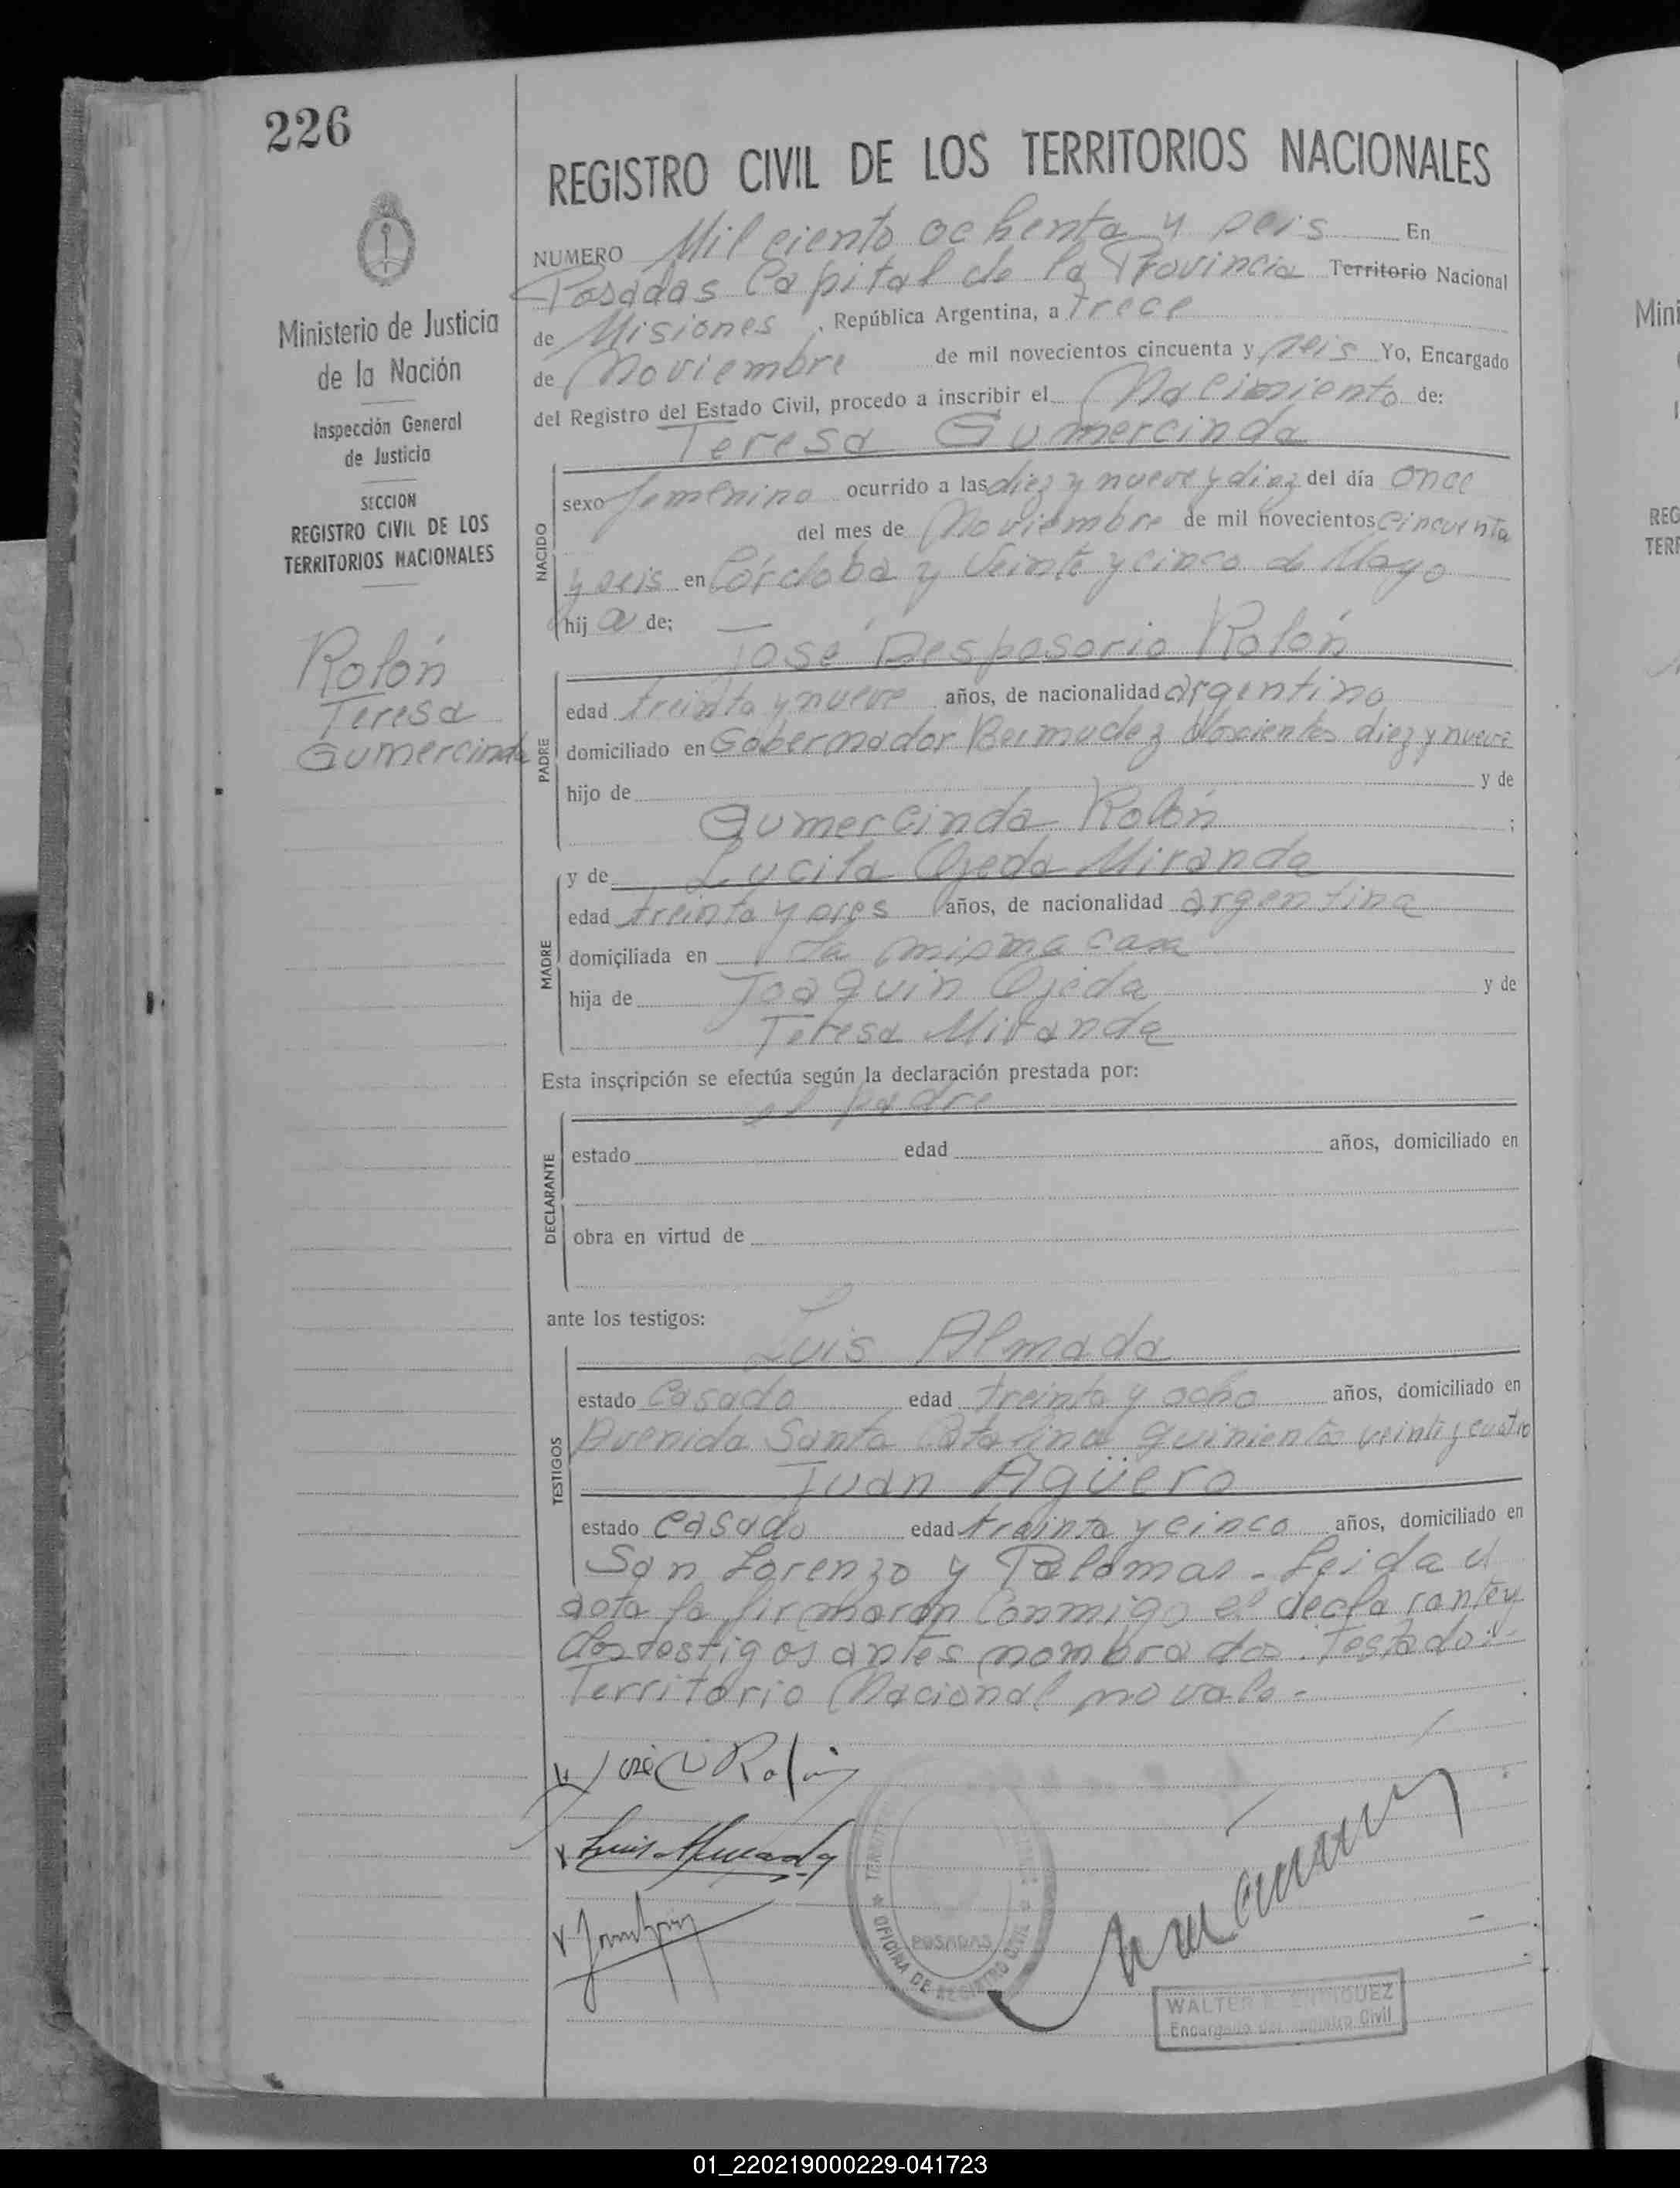 226
Ministerio de Justicia
de la Nación
Inspección General
de Justicia
SECCION
REGISTRO CIVIL DE LOS
TERRITORIOS NACIONALES
Rolón
Teresa
Gumercinda
REGISTRO CIVIL DE LOS TERRITORIOS NACIONALES
NUMERO Mil ciento ochenta y seis En
Posadas Capital de la Provincia Territorio Nacional
de Misiones, República Argentina, a trece
de Noviembre de mil novecientos cincuenta y seis Yo, Encargado
del Registro del Estado Civil, procedo a inscribir el Nacimiento de:
Teresa Gumercinda
NACIDO
sexo femenino ocurrido a las diez y nueve y diez del día once
del mes de Noviembre de mil novecientos cincuenta
y seis en Córdoba y Veinte y cinco de Mayo
hij a de:
José Desposorio Rolón
PADRE
edad treinta y nueve años, de nacionalidad argentino
domiciliado en Gobernador Bermudez doscientos diez y nueve
hijo de y de
Gumercinda Rolón ;
y de Lucila Ojeda Miranda
MADRE
edad treinta y seis años, de nacionalidad argentina
domiciliada en la misma casa
hija de Joaquin Ojeda y de
Teresa Miranda
Esta inscripción se efectúa según la declaración prestada por:
el padre
DECLARANTE
estado edad años, domiciliado en
obra en virtud de
ante los testigos:
Luis Almada
TESTIGOS
estado casado edad treinta y ocho años, domiciliado en
Avenida Santa Catalina quinientos veinte y cuatro
Juan Agüero
estado casado edad treinta y cinco años, domiciliado en
San Lorenzo y Palomar. Leida el
acta la firmaron conmigo el declarante y
los testigos antes nombrados. Testado:
Territorio Nacional no vale.-
José D Rolón
Luis Almada
OFICINA DE REGISTRO CIVIL
POSADAS
WALTER ENRIQUEZ
Encargado del Registro Civil
Mini
REG
TERR
01_220219000229-041723